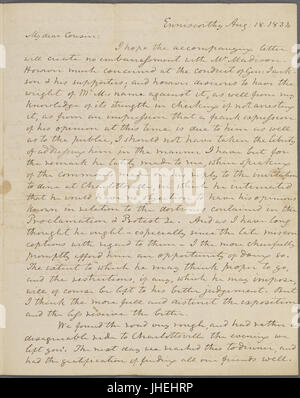 Enniscorthy Aug. 18. 1834
My dear Cousin:
I hope the accompanying letter
will create no embarrassment with Mr Madison.
However much concerned at the conduct of Gen. Jack-
son & his supporters, and however desirous to have the
weight of Mr M's name against it, as well from my
knowledge of its strength in checking if not arresting
it, as from an impression that a frank expression
of his opinion at this time is due to him as well
as to the public, I should not have taken the liberty
of addressing him in this manner, I have but for
the remark he lately made to me, when speaking
of the common reply to the invitation
to dine at Charlottesville, in which he intimated
that he would have his opinions
known in relation to the doctrines contained in the
Proclamation & Protest &c. And as I have long
thought he ought - especially since the late miscon
ceptions with regard to them - I the more cheerfully
promptly afford him an opportunity of doing so.
The extent to which he may think proper to go,
and the restrictions, if any, which he may impose,
will of course be left to his better judgement. But
I think the more full and distinct the exposition
and the less reserve the better.
We found the road very rough, and had rather a
disagreeable ride to Charlottesville the evening we
left you. The next day we reached this to dinner, and
had the gratification of finding all our friends well.
alamy
www.alamy.com
JHEHRP